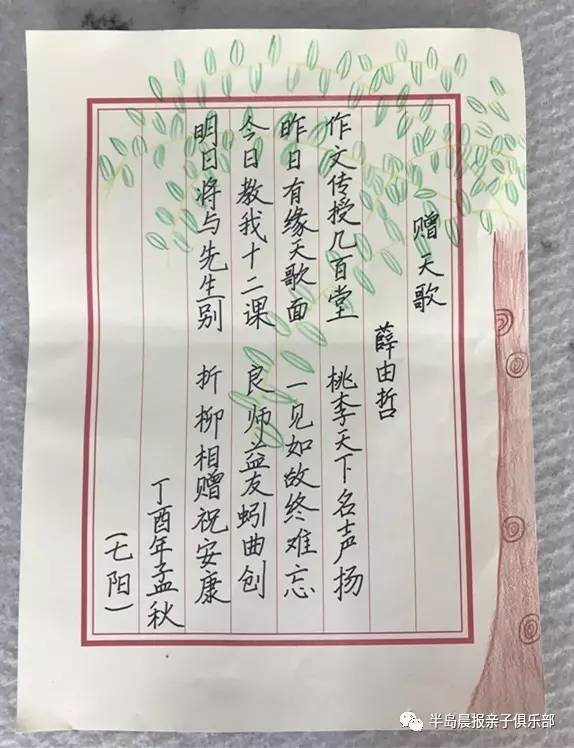 赠天歌
薛由哲
作文传授几百堂 桃李天下名声扬
昨日有缘天歌面 一见如故终难忘
今日教我十二课 良师益友蚓曲创
明日将与先生别 折柳相赠祝安康
丁酉年孟秋
(七阳)
半岛晨报亲子俱乐部